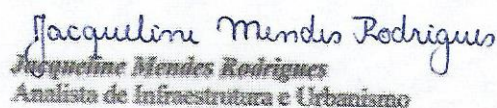 Jacqueline Mendes Rodrigues
Jacqueline Mendes Rodrigues
Analista de Infraestrutura e Urbanismo